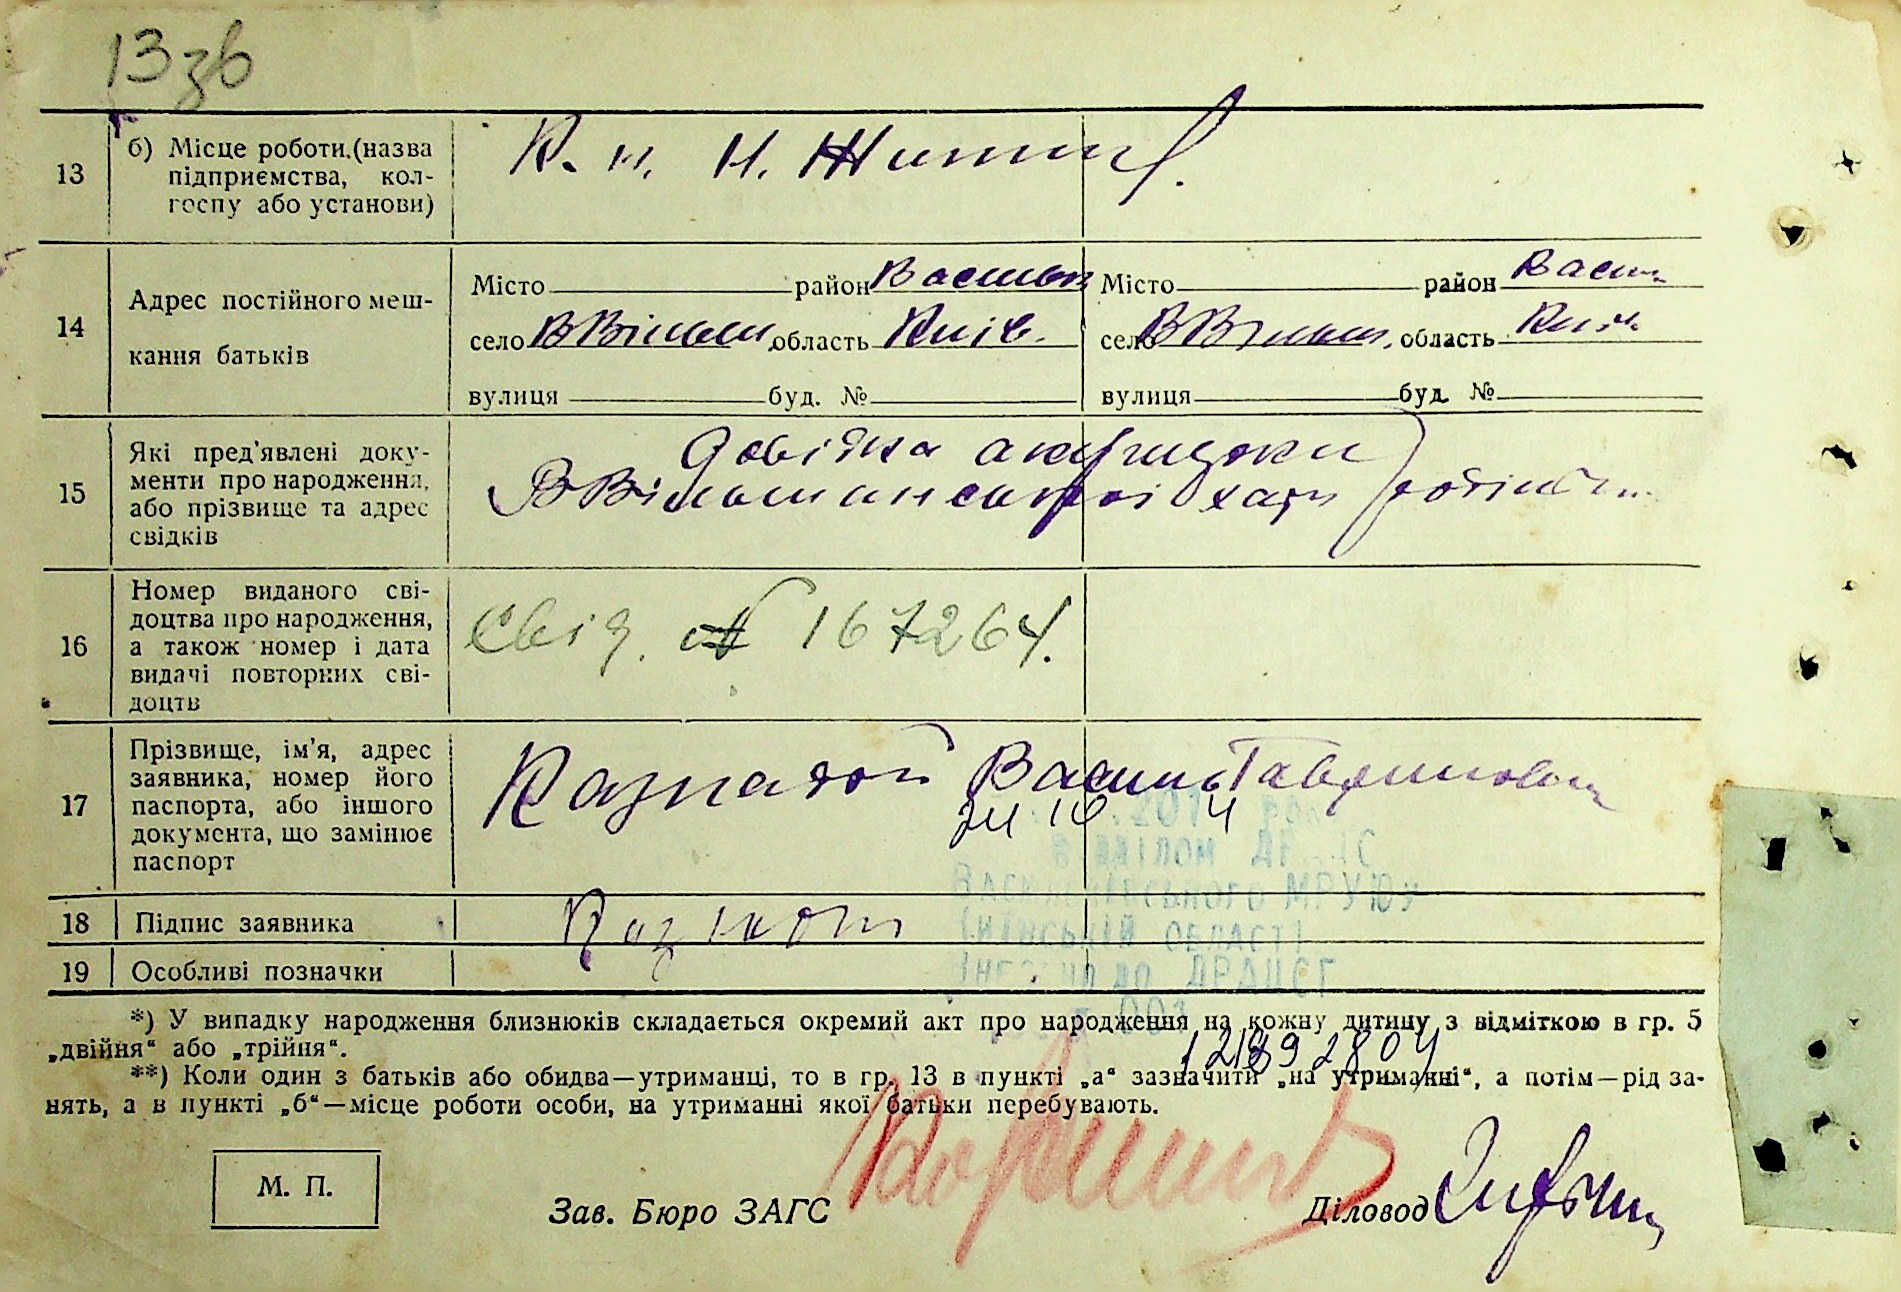 13зв
13
б) Місце роботи (назва
підприємства, кол-
госпу або установи)
К. н. Н. Життя.
14
Адрес постійного меш-
кання батьків
Місто район Васильк
село ВВільшан. область Київ.
вулиця буд. №
Місто район Васи
село ВВільшан. область Київ
вулиця буд. №
15
Які пред'явлені доку-
менти про народження,
або прізвище та адрес
свідків
Довідка акушерки
ВВільшанської хати
16
Номер виданого сві-
доцтва про народження,
а також номер і дата
видачі повторних сві-
доцтв
Свід. № 167264.
17
Прізвище, ім'я, адрес
заявника, номер його
паспорта, або іншого
документа, що замінює
паспорт
Василь Гаврилович
18
Підпис заявника
19
Особливі позначки
ОБЛАСТІ
ДРАЦСГ
*) У випадку народження близнюків складається окремий акт про народження на кожну дитину з відміткою в гр. 5
„двійня“ або „трійня“.
**) Коли один з батьків або обидва—утриманці, то в гр. 13 в пункті „а“ зазначити „на утриманні“, а потім—рід за-
нять, а в пункті „б“—місце роботи особи, на утриманні якої батьки перебувають.
М. П.
Зав. Бюро ЗАГС
Діловод